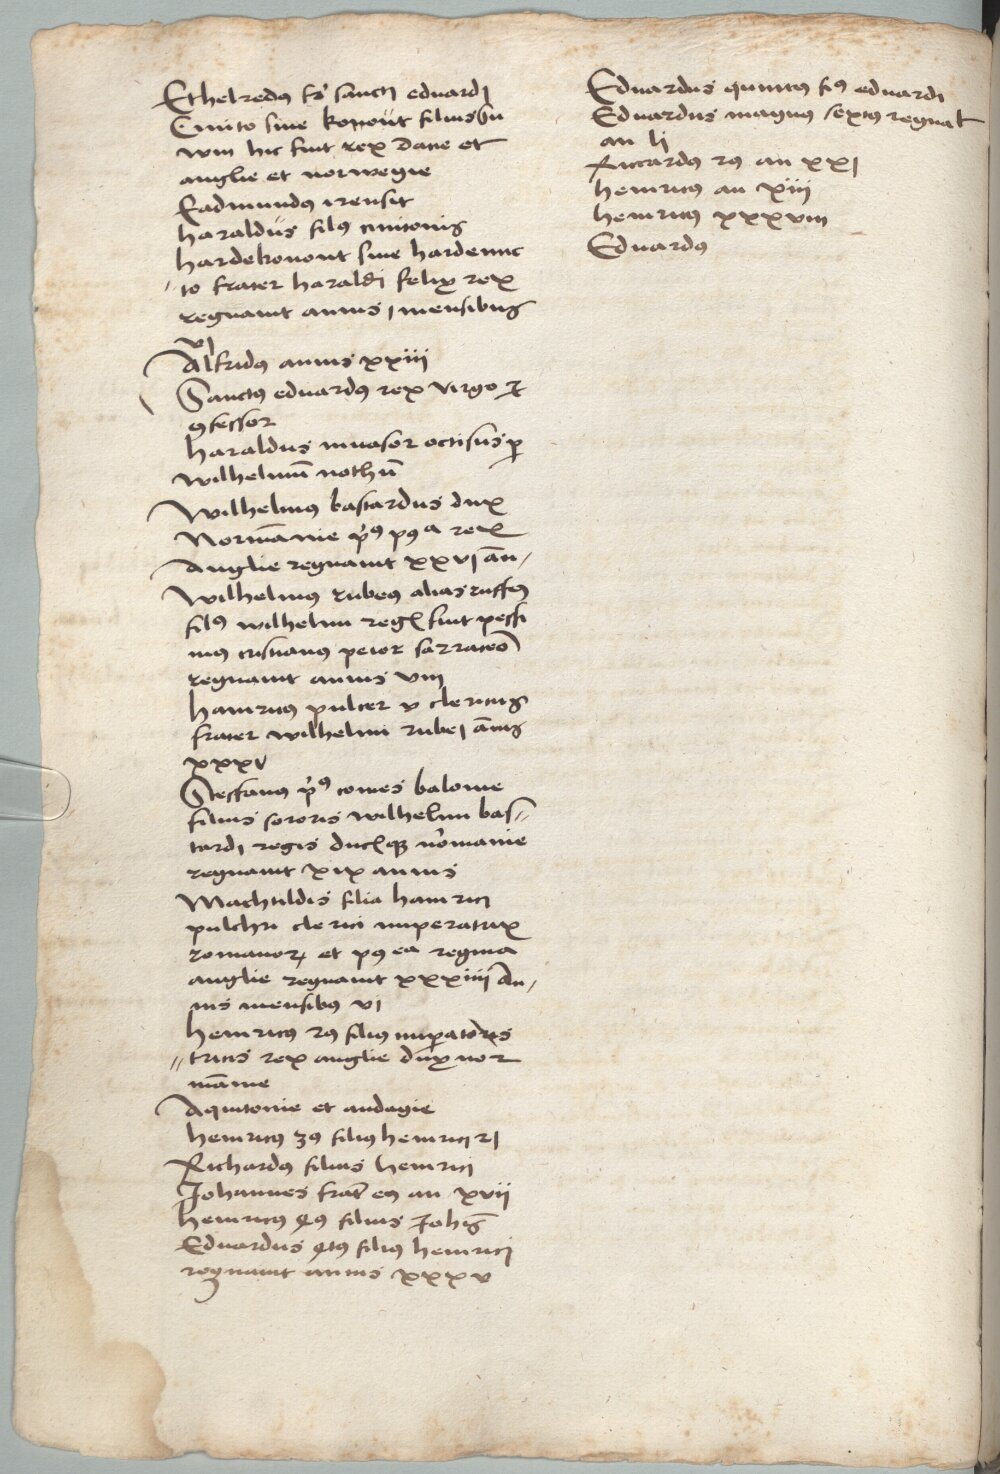 Ethelredus fr sancti eduardi
Cnuto siue konout filius su
win hic fuit rex dacie et
anglie et norwegie
Eadmundus irensit
haraldus filius cnitonis
hardekonout siue hardecnc
to frater haraldi felix rex
regnauit annis i mensibus
vi
Alfridus annis xxiii
Sanctus eduardus rex virgo et
9fessor
haraldus inuasor occisus p
wilhelmū nothū
Wilhelmus bastardus dux
Normānie p9 p9 a rex
Anglie regnauit xxvi an
Wilhelmus rubeus alias ruffus
fil9 wilhelmi regis fuit pessi
mus cristianus peior sarraceno
regnauit annis viii
hainricus pulcer v clericus
frater wilhelmi rubei annis
xxxv
Steffanus p9 comes balonie
filius sororis wilhelmi bas
tardi regis ducisq normanie
regnauit xix annis
Machtildis filia hainrici
pulchri clerici imperatrix
romanor et p9 ea regina
anglie regnauit xxxiiii An
nis mensibus vi
heinricus 2us filius imperatoris
tricis rex anglie dux nor
mānie
Aquitonie et andagie
heinricus 3us filius heinrici 2i
Richardus filius heinrici
Johannes frat eius an xvii
heinricus 4us filius Johis
Eduardus 4tus filius heinrici
regnauit annis xxxv
Eduardus quintus fi9 eduardi
Eduardus magnus sextus regnat
an li
Riccardus 2us an xxi
heinricus an xiii
heinricus xxxviii
Eduardus